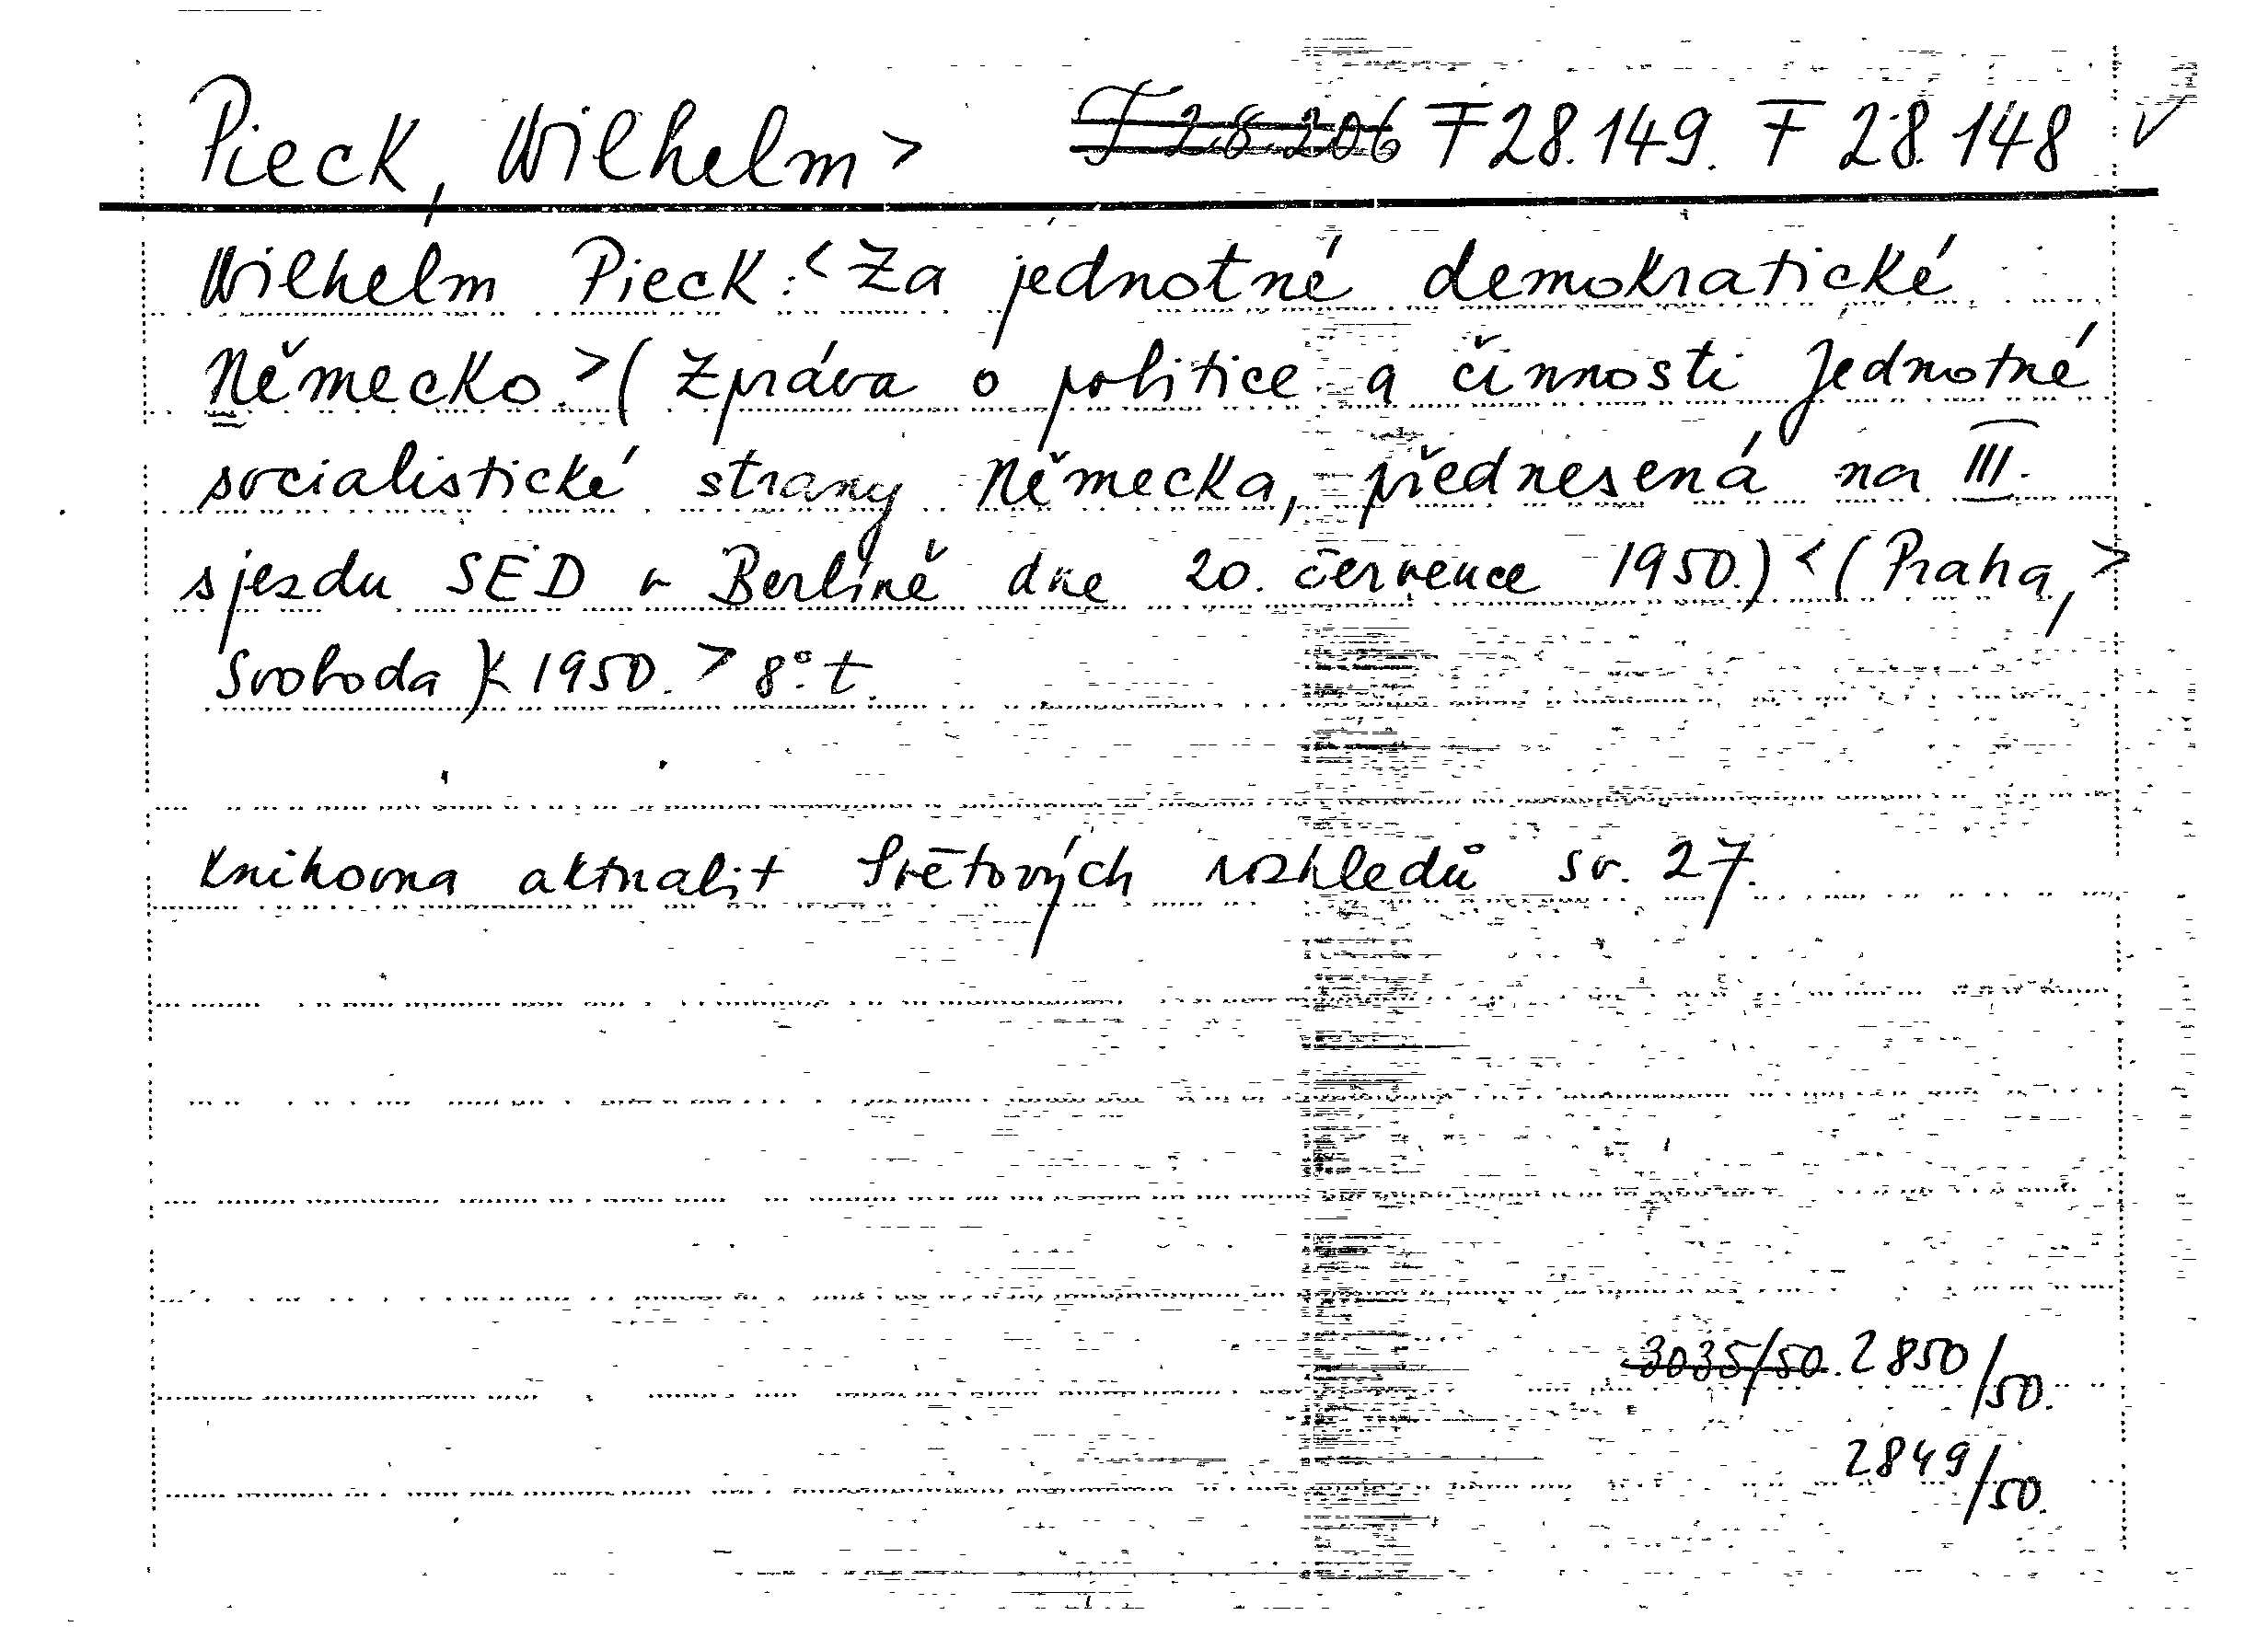 Pieck, Wilhelm > F 28.206 F 28.149. F 28.148 ✓
Wilhelm Pieck: < Za jednotné demokratické
Německo. > ( Zpráva o politice a činnosti Jednotné
socialistické strany Německa, přednesená na III.
sjezdu SED v Berlíně dne 20. července 1950.) < ( Praha, >
Svoboda ) < 1950. > 8°. t.
Knihovna aktualit Světových rozhledů sv. 27.
3035/50. 2850/50.
2849/50.